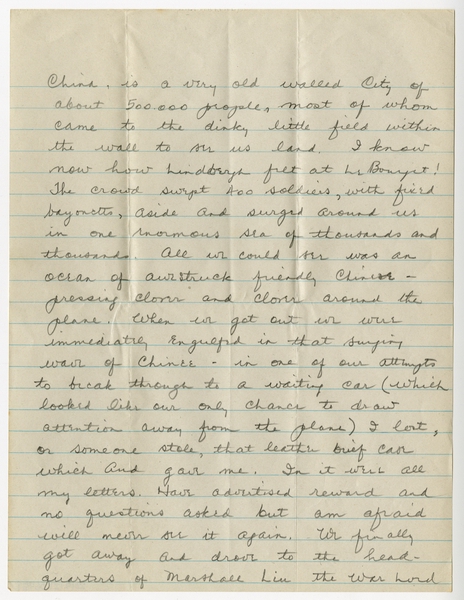 China. is a very old walled City of
about 500.000 people, most of whom
came to the dinky little field within
the wall to see us land. I know
now how Lindbergh felt at Le Bourget!
The crowd swept 400 soldiers, with fixed
bayonetts, aside and surged around us
in one enormous sea of thousands and
thousands. All we could see was an
ocean of awestruck friendly Chinese -
pressing closer and closer around the
plane. When we got out we were
immediately engulfed in that surging
wave of Chinese - in one of our attempts
to break through to a waiting car (which
looked like our only chance to draw
attention away from the plane) I lost,
or someone stole, that leather brief case
which And gave me. In it were all
my letters. Have advertised reward and
no questions asked but am afraid
will never see it again. We finally
got away and drove to the head-
quarters of Marshall Liu the War Lord